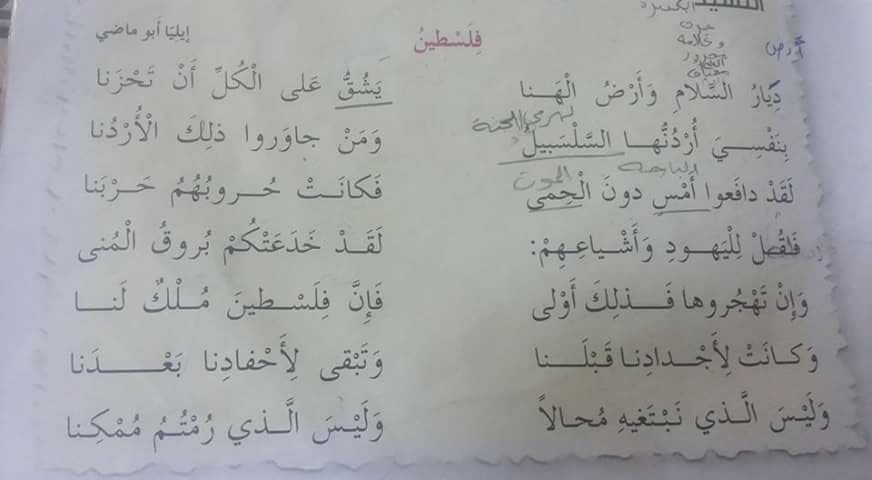 النشيد
فِلَسْطينُ
إيليّا أَبو ماضي
دِيَارُ السَّلامِ وَأَرْضُ الْهَـنا يَشُقُّ عَلى الْكُلِّ أَنْ تَحْزَنا
بِنَفْسِـيَ أُرْدُنُّهـا السَّلْسَبيلُ وَمَنْ جاوَروا ذلِكَ الْأُرْدُنا
لَقَدْ دافَعوا أَمْسِ دونَ الْحِمى فَكانَـتْ حُـروبُهُمُ حَـرْبَنا
فَقُـلْ لِلْيَهـودِ وَأَشْـياعِـهِمْ: لَقَـدْ خَدَعَتْكُمْ بُروقُ الْمُنى
وَإِنْ تَهْجُروها فَـذلِكَ أَوْلى فَإِنَّ فِلَسْـطينَ مُـلْكٌ لَنـا
وَكـانَتْ لِأَجْـدادِنـا قَبْلَـنا وَتَبْقى لِأَحْفادِنا بَعْـدَنا
وَلَيْسَ الَّـذي نَبْتَغيهِ مُحـالاً وَلَيْـسَ الَّـذي رُمْتُـمُ مُمْكِنـا